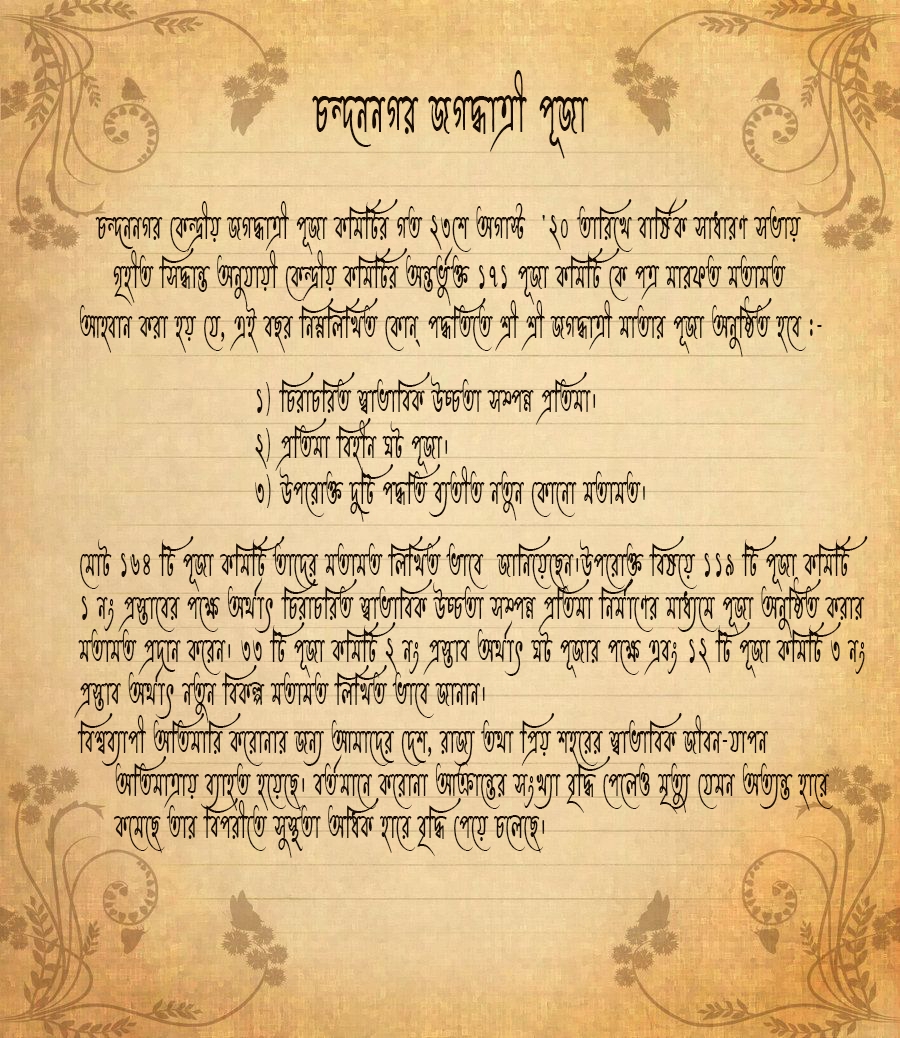 চন্দননগর জগদ্ধাত্রী পূজা
চন্দননগর কেন্দ্রীয় জগদ্ধাত্রী পূজা কমিটির গত ২৩শে অগাস্ট '২০ তারিখে বার্ষিক সাধারণ সভায়
গৃহীত সিদ্ধান্ত অনুযায়ী কেন্দ্রীয় কমিটির অন্তর্ভুক্ত ১৭১ পূজা কমিটি কে পত্র মারফত মতামত
আহবান করা হয় যে, এই বছর নিম্নলিখিত কোন্ পদ্ধতিতে শ্রী শ্রী জগদ্ধাত্রী মাতার পূজা অনুষ্ঠিত হবে :-
১) চিরাচরিত স্বাভাবিক উচ্চতা সম্পন্ন প্রতিমা।
২) প্রতিমা বিহীন ঘট পূজা।
৩) উপরোক্ত দুটি পদ্ধতি ব্যতীত নতুন কোনো মতামত।
মোট ১৬৪ টি পূজা কমিটি তাদের মতামত লিখিত ভাবে জানিয়েছেন।উপরোক্ত বিষয়ে ১১৯ টি পূজা কমিটি
১ নং প্রস্তাবের পক্ষে অর্থাৎ চিরাচরিত স্বাভাবিক উচ্চতা সম্পন্ন প্রতিমা নির্মাণের মাধ্যমে পূজা অনুষ্ঠিত করার
মতামত প্রদান করেন। ৩৩ টি পূজা কমিটি ২ নং প্রস্তাব অর্থাৎ ঘট পূজার পক্ষে এবং ১২ টি পূজা কমিটি ৩ নং
প্রস্তাব অর্থাৎ নতুন বিকল্প মতামত লিখিত ভাবে জানান।
বিশ্বব্যাপী অতিমারি করোনার জন্য আমাদের দেশ, রাজ্য তথা প্রিয় শহরের স্বাভাবিক জীবন-যাপন
অতিমাত্রায় ব্যাহত হয়েছে। বর্তমানে করোনা আক্রান্তের সংখ্যা বৃদ্ধি পেলেও মৃত্যু যেমন অত্যন্ত হারে
কমেছে তার বিপরীতে সুস্থতা অধিক হারে বৃদ্ধি পেয়ে চলেছে।